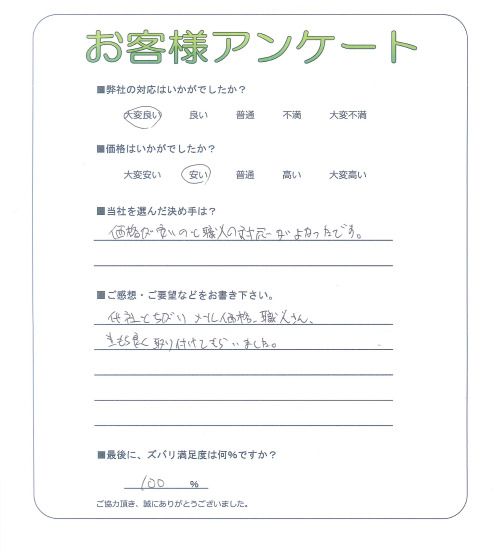 お客様アンケート
■弊社の対応はいかがでしたか？
大変良い 良い 普通 不満 大変不満
■価格はいかがでしたか？
大変安い 安い 普通 高い 大変高い
■当社を選んだ決め手は？
価格が安いのと職人の対応がよかったです。
■ご感想・ご要望などをお書き下さい。
他社とちがい メール価格、職人さん、
気もち良く取り付けてもらいました。
■最後に、ズバリ満足度は何％ですか？
100 ％
ご協力頂き、誠にありがとうございました。